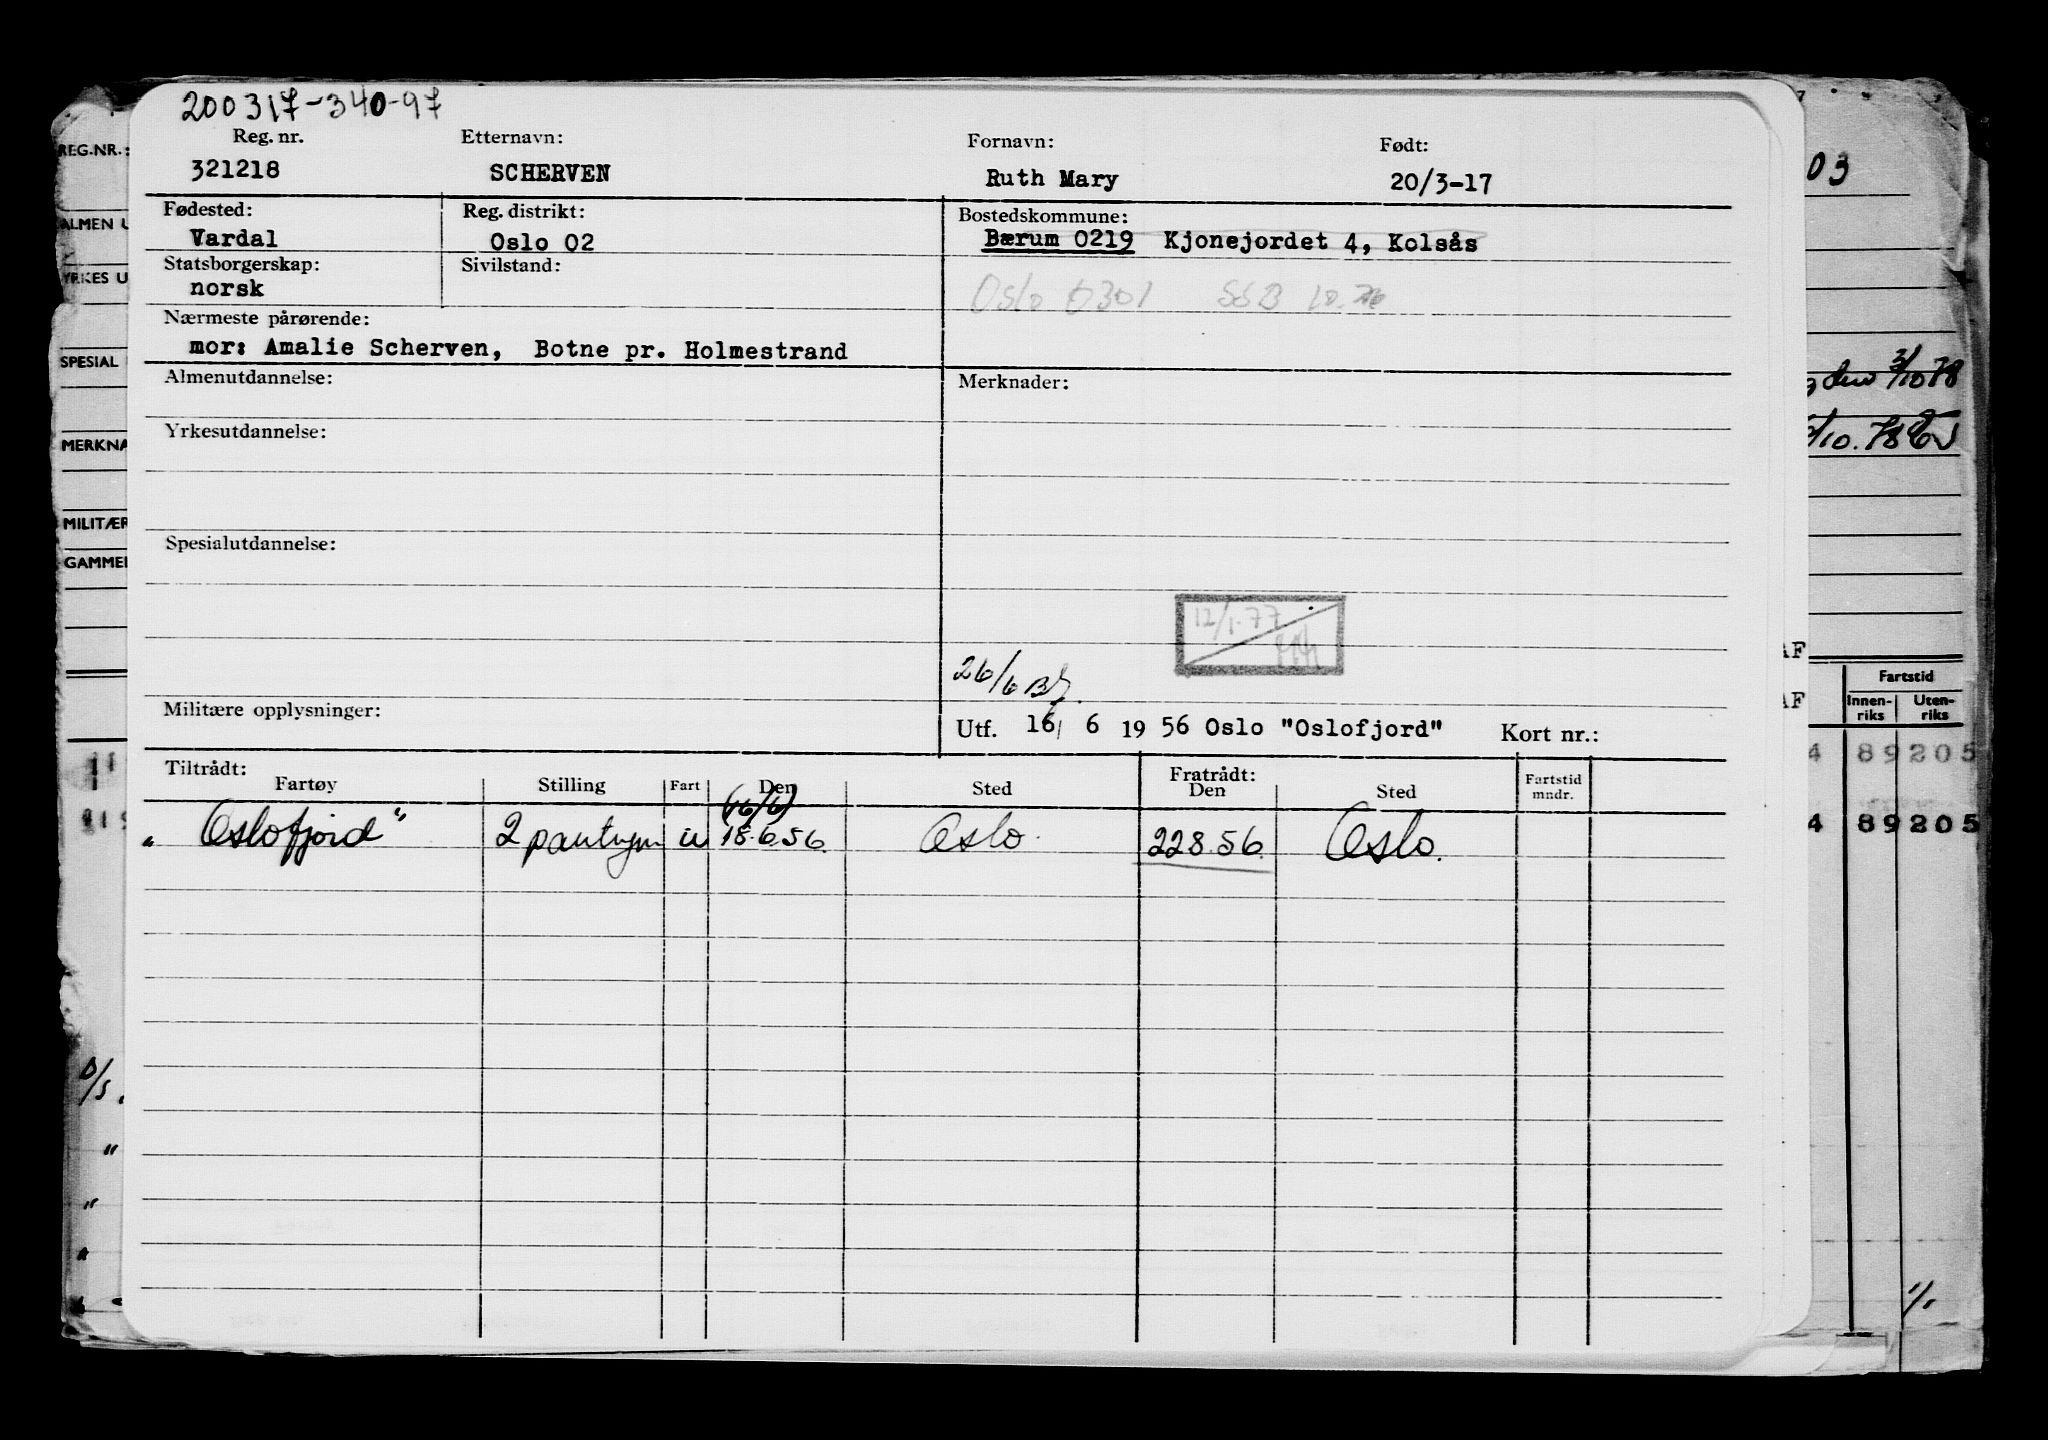 200317-340-97
Reg. nr. Etternavn: Fornavn: Født:
321218 SCHERVEN Ruth Mary 20/3-17
Fødested: Reg. distrikt: Bostedskommune:
Vardal Oslo 02 Bærum 0219 Kjonejordet 4, Kolsås
Statsborgerskap: Sivilstand:
norsk
Oslo 0301 SSB 10.76
Nærmeste pårørende:
mor: Amalie Scherven, Botne pr. Holmestrand
Almenutdannelse: Merknader:
Yrkesutdannelse:
Spesialutdannelse:
12/1-77
26/6
Militære opplysninger:
Utf. 16/ 6 19 56 Oslo "Oslofjord" Kort nr.:
Tiltrådt: Fratrådt:
Fartøy Stilling Fart Den Sted Den Sted Fartstid mndr.
(16/6)
"Oslofjord" 2 pantrym u 18.6.56. Oslo 22856. Oslo.
REG.NR.:
ALMEN U
YRKES U
SPESIAL
MERKNA
MILITÆR
GAMMEL
03
3/10 78
/10.78
AF
Fartstid
AF Innen-riks Uten-riks
4 89 205
4 89 205